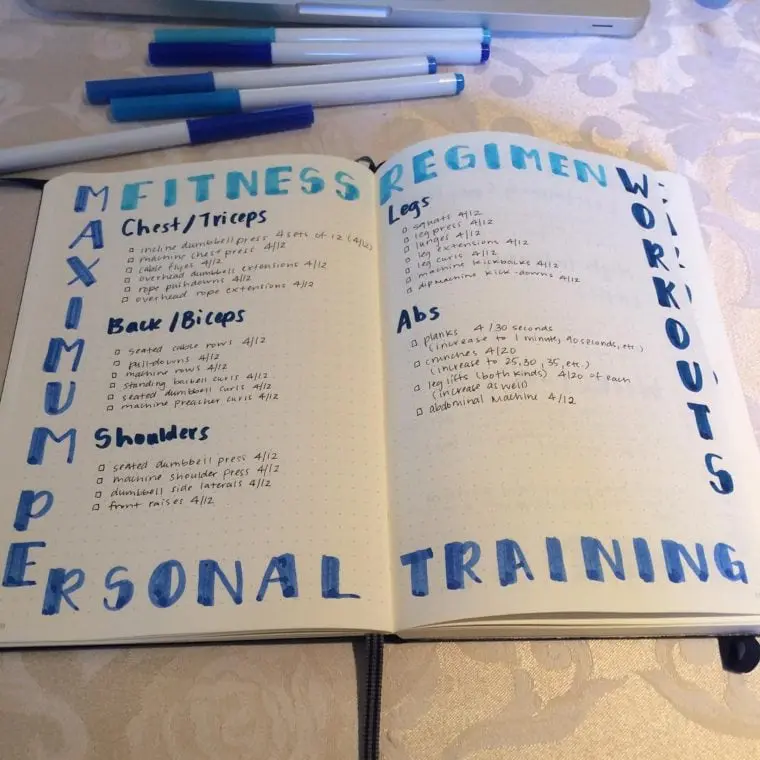 FITNESS REGIMEN
MAXIMUM PERSONAL TRAINING
WORKOUTS
Chest/Triceps
incline dumbbell press 4 sets of 12 (4/12)
machine chest press 4/12
cable flyes 4/12
overhead dumbbell extensions 4/12
rope pushdowns 4/12
overhead rope extensions 4/12
Back/Biceps
seated cable rows 4/12
pulldowns 4/12
machine rows 4/12
standing barbell curls 4/12
seated dumbbell curls 4/12
machine preacher curls 4/12
Shoulders
seated dumbbell press 4/12
machine shoulder press 4/12
dumbbell side laterals 4/12
front raises 4/12
Legs
squats 4/12
leg press 4/12
lunges 4/12
leg extensions 4/12
leg curls 4/12
machine kickbacks 4/12
dip machine kick-downs 4/12
Abs
planks 4/30 seconds
(increase to 1 minute, 90 seconds, etc.)
crunches 4/20
(increase to 25, 30, 35, etc.)
leg lifts (both kinds) 4/20 of each
(increase as well)
abdominal machine 4/12